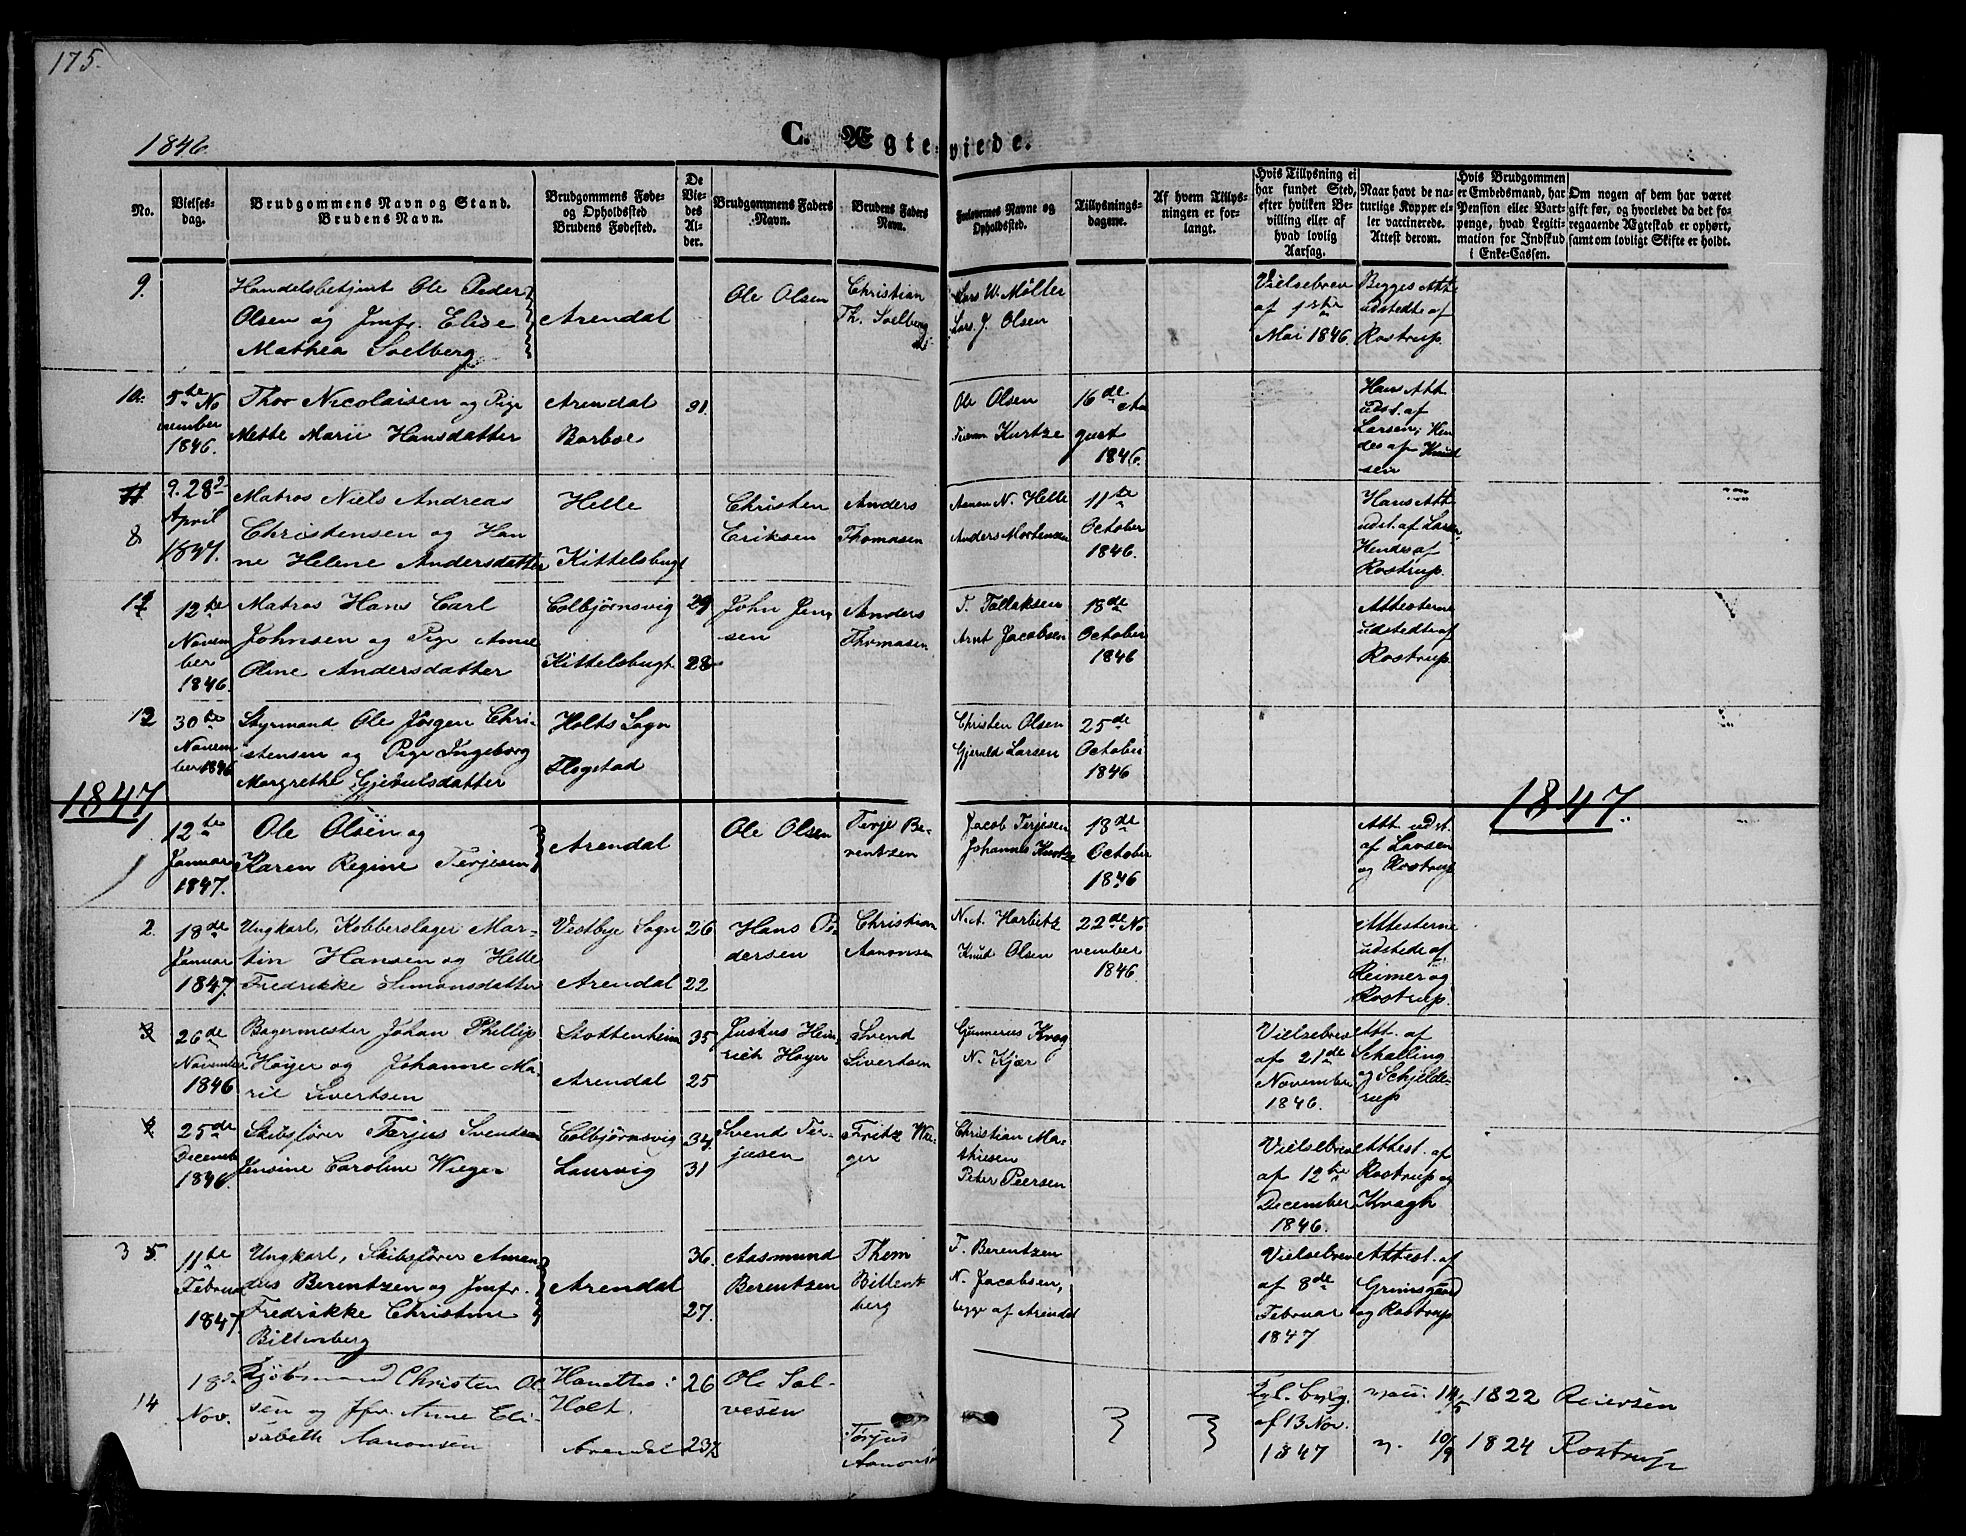 175.
1846
C. Ægteviede.
No.
Vielses-
dag.
Brudgommens Navn og Stand.
Brudens Navn.
Brudgommens Føde-
og Opholdssted
Brudens Fødested.
De
Vie-
des
Al-
der.
Brudgommens Faders
Navn.
Brudens Faders
Navn.
Forlovernes Navne og
Opholdssted.
Tillysnings-
dagene.
Af hvem Tillys-
ningen er for-
langt.
Hvis Tillysning ei
har fundet Sted,
efter hvilken Be-
villing eller af
hvad lovlig
Aarsag.
Naar havt de na-
turlige Kopper el-
ler vaccinerede.
Attest derom.
Hvis Brudgommen
er Embedsmand, har
Pension eller Vart-
penge, hvad Legiti-
mation for Indskud
i Enke-Cassen.
Om nogen af dem har været
gift før, og hvorledet da det fo-
regaaende Ægteskab er ophørt,
samt om lovligt Skifte er holdt.
9.
Handelsbetjent Ole Peder
Olsen og Jmfr. Elise
Mathea Soelberg
Arendal
Ole Olsen
Christian
Th. Soelberg
Lars W. Møller
Lars J. Olsen
Vielsebrev
af 1ste
Mai 1846.
Begges Att.
udstedte af
Rostrup.
10.
5te No
vember
1846.
Thor Nicolaisen og Pige
Mette Marie Hansdatter
Arendal
Barboe
31.
Ole Olsen
Kurtze
16de Au
gust
1846.
Hans Att.
udst. af
Larsen, Hen
des af Knud
sen
11
8
9. 28
April
1847.
Matros Niels Andreas
Christensen og Han
ne Helene Andersdatter
Helle
Kittelsbugt
Christen
Eriksen
Anders
Thomasen
Aanen N. Helle
Anders Mortensen
11te
October
1846.
Hans Att.
udst. af Larsen,
Hendes af
Rostrup.
12
12te
Novem
ber
1846.
Matros Hans Carl
Johnsen og Pige Anne
Oline Andersdatter
Colbjørnsvig
Kittelsbugt
29
28
John Jen
sen
Anders
Thomasen
T. Tallaksen
Arnt Jacobsen
18de
October
1846
Attesterne
udstedte af
Rostrup.
13
30te
Novem
ber 1846
Styrmand Ole Jørgen Chri-
stensen og Pige Ingeborg
Margrethe Gjerulsdatter
Holts Sogn
Flogstad
Christen Olsen
Gjeruld Larsen
25de
October
1846
1847
1847.
1.
12te
Januar
1847.
Ole Olsen og
Karen Regine Terjesen
Arendal
Ole Olsen
Terje Be-
rentzen
Jacob Terjesen
Johannes Kurtze
18de
October
1846
Att. udst.
af Larsen
og Rostrup
2.
18de
Januar
1847.
Ungkarl, Kobberslager Mar-
tin Hansen og Helle
Fredrikke Simonsdatter
Vestbye Sogn
Arendal
26
22
Hans Pe-
dersen
Christian
Aanonsen
N. A. Harbitz
Knud Olsen
22de No
vember
1846.
Attesterne
udstede af
Reimer og
Rostrup.
3
26de
November
1846
Bagermester Johan Phillip
Høyer og Johanne Ma-
rie Sivertsen
Stottenheim
Arendal
35
25
Justus Hein
rich Høyer
Svend
Sivertsen
Gunnerius Krog
N. Kjær
Vielsebrev
af 21de
November
1846.
Att. af
Schelling
og Schjelde-
rup
25de
Decemb
1846.
Skibsfører Terjus Svendsen
Jensine Caroline Wieger
Colbjørnsvig
Laurvig
34.
31
Svend Ter-
jusen
Fritz Wie-
ger
Christian Ma-
thiesen
Peter Peersen
Vielsebrev
af 12te
December
1846.
Attest. af
Rostrup og
Kragh
3 5
11te
Februar
1847
Ungkarl, Skibsfører Aman
dus Berentzen og Jmfr.
Fredrikke Christine
Biltenberg
Arendal
36.
27.
Aasmund
Berentzen
Them
Biltent
berg
T. Berentzen
N. Jacobsen,
begge af Arendal
Vielsebrev
af 8de
Februar
1847
Attest. af
Grimsgaard
og Rostrup
14
18
Nov.
Kjøbmand Christen Ol
sen og Jfr. Anne Eli
sabeth Aanonsen
Holt.
Arendal
26
23½
Ole Sal-
vesen
Tørjus
Aanons
Kgl. bevg.
af 13 Nov.
1847
vacc. 14/5 1822 Reiersen
v. 10/9 1824 Rostrup